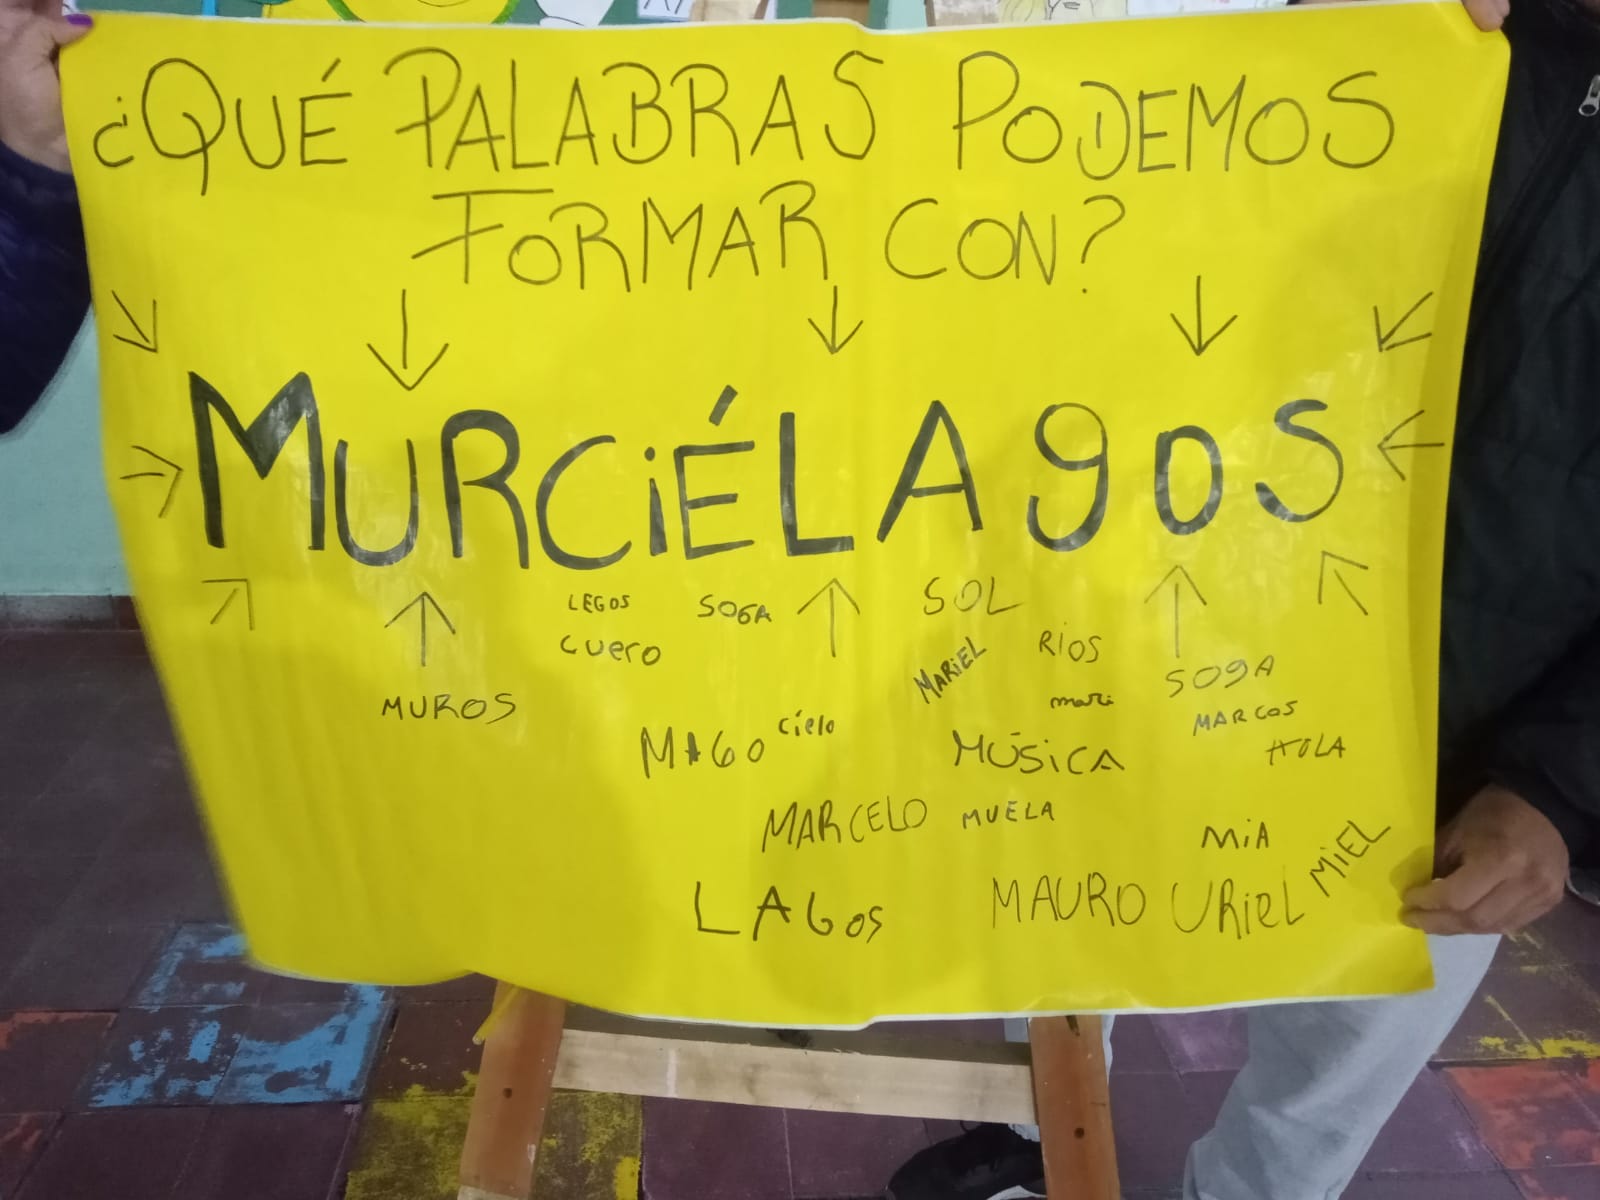 ¿QUÉ PALABRAS PODEMOS
FORMAR CON?
MURCiÉLAgOS
LEGOS SOGA SOL
CUerO MARiEL RÍOS
MUROS mari SOgA
MAGO Cíelo MÚSiCA MARCOS
HOLA
MARCELO MUELA MiA
MiEL
LAGos MAURO URieL